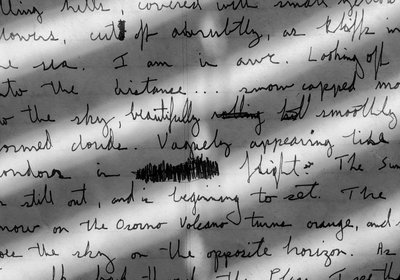 lling hills, covered with small
lowers, cut off abruptly, as
e sea. I am in awe. Looking off
nto the distance... snow capped mo
o the sky, beautifully smoothly
ormed clouds. Vaguely appearing like
ondors in flight. The Sun
s still out, and is beginning to set. The
now on the Osorno Volcano turns orange, and
the sky on the opposite horizon. As